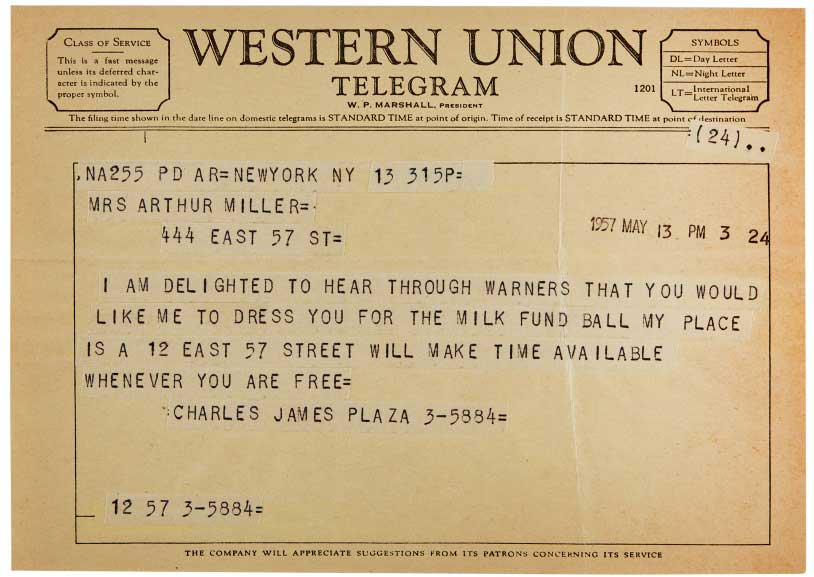 CLASS OF SERVICE
This is a fast message
unless its deferred char-
acter is indicated by the
proper symbol.
WESTERN UNION
TELEGRAM
W. P. MARSHALL, PRESIDENT
1201
SYMBOLS
DL=Day Letter
NL=Night Letter
LT=International Letter Telegram
The filing time shown in the date line on domestic telegrams is STANDARD TIME at point of origin. Time of receipt is STANDARD TIME at point of destination
(24)..
NA255 PD AR=NEWYORK NY 13 315P=
MRS ARTHUR MILLER=
444 EAST 57 ST=
1957 MAY 13 PM 3 24
I AM DELIGHTED TO HEAR THROUGH WARNERS THAT YOU WOULD
LIKE ME TO DRESS YOU FOR THE MILK FUND BALL MY PLACE
IS A 12 EAST 57 STREET WILL MAKE TIME AVAILABLE
WHENEVER YOU ARE FREE=
CHARLES JAMES PLAZA 3-5884=
12 57 3-5884=
THE COMPANY WILL APPRECIATE SUGGESTIONS FROM ITS PATRONS CONCERNING ITS SERVICE